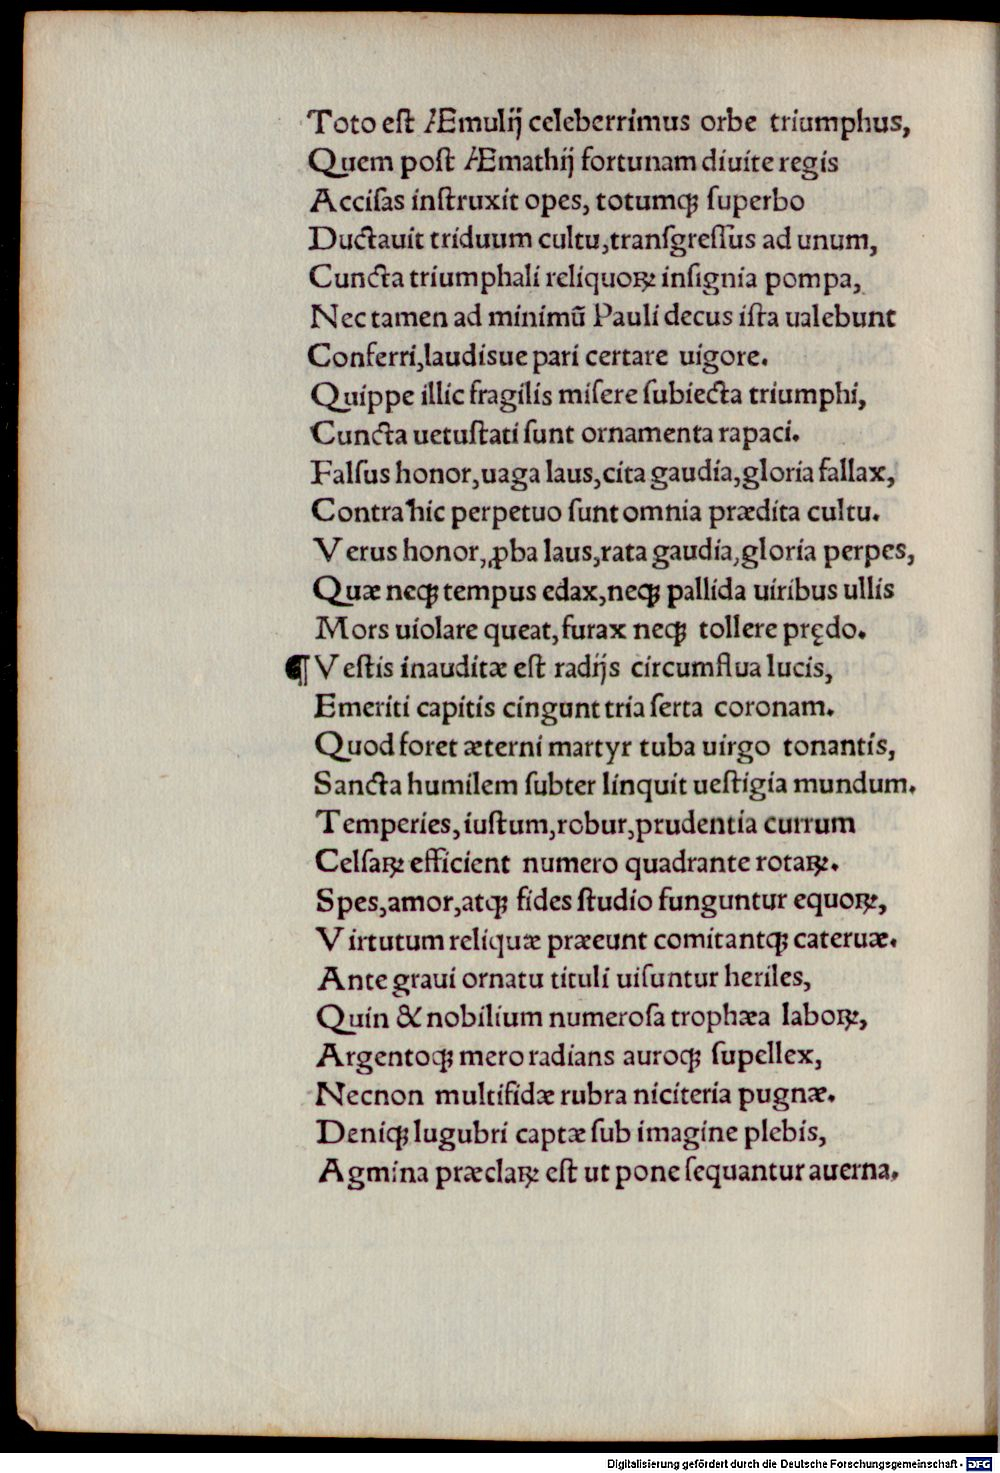 Toto eſt Æmulĳ celeberrimus orbe triumphus,
Quem poſt Æmathĳ fortunam diuite regis
Acciſas inſtruxit opes, totumqꝫ ſuperbo
Ductauit triduum cultu,tranſgreſſus ad unum,
Cuncta triumphali reliquoꝝ inſignia pompa,
Nec tamen ad minimū Pauli decus iſta ualebunt
Conferri,laudisue pari certare uigore.
Quippe illic fragilis miſere ſubiecta triumphi,
Cuncta uetuſtati ſunt ornamenta rapaci.
Falſus honor,uaga laus,cita gaudia,gloria fallax,
Contra hic perpetuo ſunt omnia prædita cultu.
Verus honor,ꝓba laus,rata gaudia,gloria perpes,
Quæ neqꝫ tempus edax,neqꝫ pallida uiribus ullis
Mors uiolare queat,furax neqꝫ tollere prędo.
¶ Veſtis inauditæ eſt radĳs circumflua lucis,
Emeriti capitis cingunt tria ſerta coronam.
Quod foret æterni martyr tuba uirgo tonantis,
Sancta humilem ſubter linquit ueſtigia mundum.
Temperies,iuſtum,robur,prudentia currum
Celſaꝝ efficient numero quadrante rotaꝝ.
Spes,amor,atqꝫ fides ſtudio funguntur equoꝝ,
Virtutum reliquæ præeunt comitantqꝫ cateruæ.
Ante graui ornatu tituli uiſuntur heriles,
Quin & nobilium numeroſa trophæa laboꝝ,
Argentoqꝫ mero radians auroqꝫ ſupellex,
Necnon multifidæ rubra niciteria pugnæ.
Deniqꝫ lugubri captæ ſub imagine plebis,
Agmina præclaꝝ eſt ut pone ſequantur auerna.
Digitalisierung gefördert durch die Deutsche Forschungsgemeinschaft - DFG